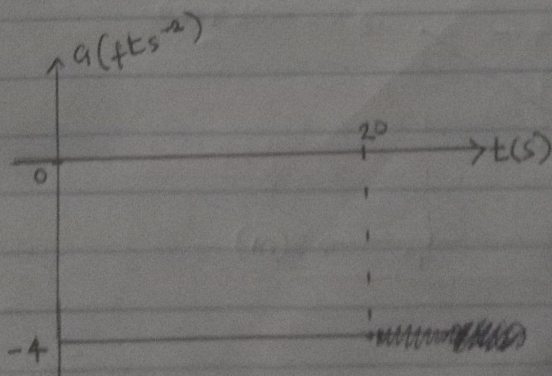 a(ft s⁻²)
20
t(s)
0
-4